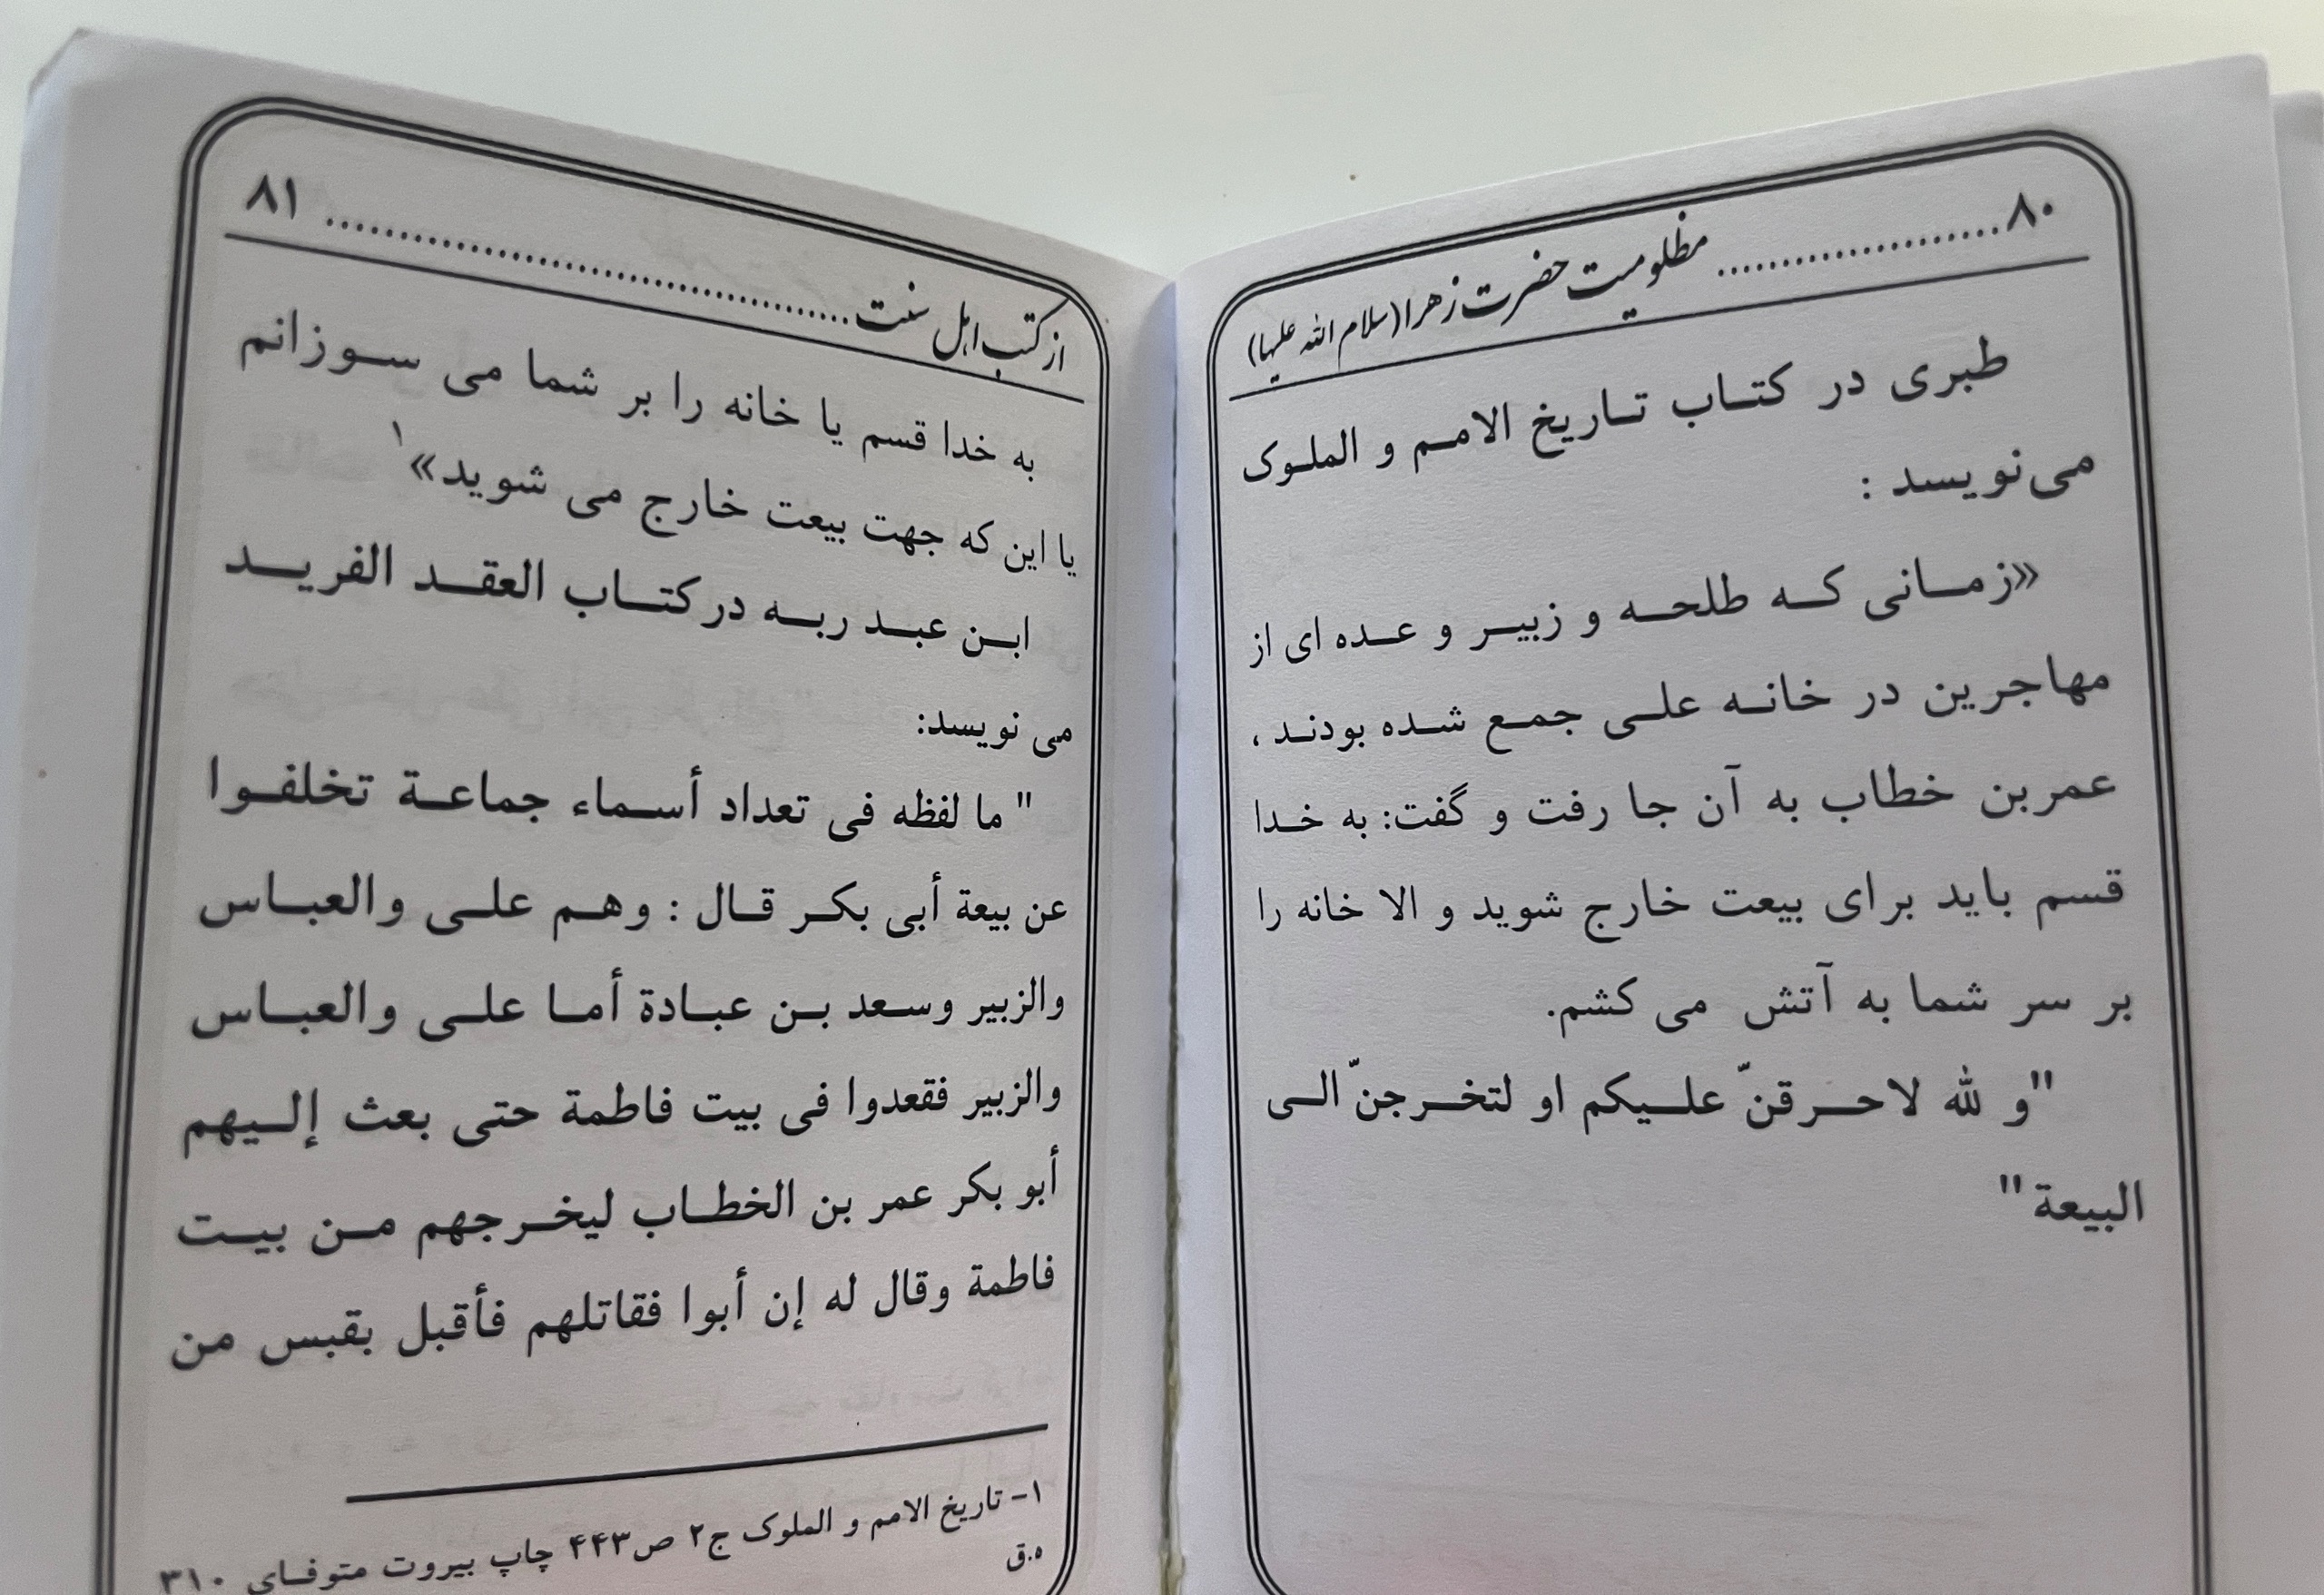 ۸۰ .................... مظلومیت حضرت زهرا (سلام الله علیها)
طبری در کتاب تاریخ الامم و الملوک
می‌نویسد :
«زمانی که طلحه و زبیر و عده ای از
مهاجرین در خانه علی جمع شده بودند ،
عمربن خطاب به آن جا رفت و گفت: به خدا
قسم باید برای بیعت خارج شوید و الا خانه را
بر سر شما به آتش می کشم.
"و لله لاحرقنّ علیکم او لتخرجنّ الی
البیعة"
از کتب اهل سنت .................... ۸۱
به خدا قسم یا خانه را بر شما می سوزانم
یا این که جهت بیعت خارج می شوید»۱
ابن عبد ربه در کتاب العقد الفرید
می نویسد:
" ما لفظه فی تعداد أسماء جماعة تخلفوا
عن بیعة أبی بکر قال : وهم علی والعباس
والزبیر وسعد بن عبادة أما علی والعباس
والزبیر فقعدوا فی بیت فاطمة حتی بعث إلیهم
أبو بکر عمر بن الخطاب لیخرجهم من بیت
فاطمة وقال له إن أبوا فقاتلهم فأقبل بقبس من
۱- تاریخ الامم و الملوک ج۲ ص۴۴۳ چاپ بیروت متوفای ۳۱۰
ه.ق